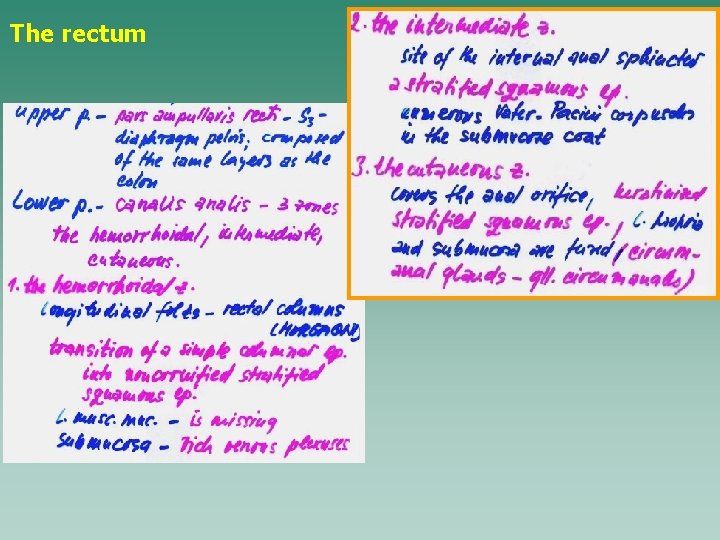 The rectum
upper p. - pars ampullaris recti - S3 -
diaphragm pelvis; composed
of the same layers as the
colon
Lower p. - canalis analis - 3 zones
the hemorrhoidal, intermediate,
cutaneous.
1. the hemorrhoidal z.
longitudinal folds - rectal columns
(MORGAGNI)
transition of a simple columnar ep.
into noncornified stratified
squamous ep.
l. musc. muc. - is missing
submucosa - rich venous plexuses
2. the intermediate z.
site of the internal anal sphincter
a stratified squamous ep.
numerous Vater-Pacini corpuscles
in the submucose coat
3. the cutaneous z.
covers the anal orifice, keratinized
stratified squamous ep., l. propria
and submucosa are fused (circum-
anal glands - gll. circumanales)